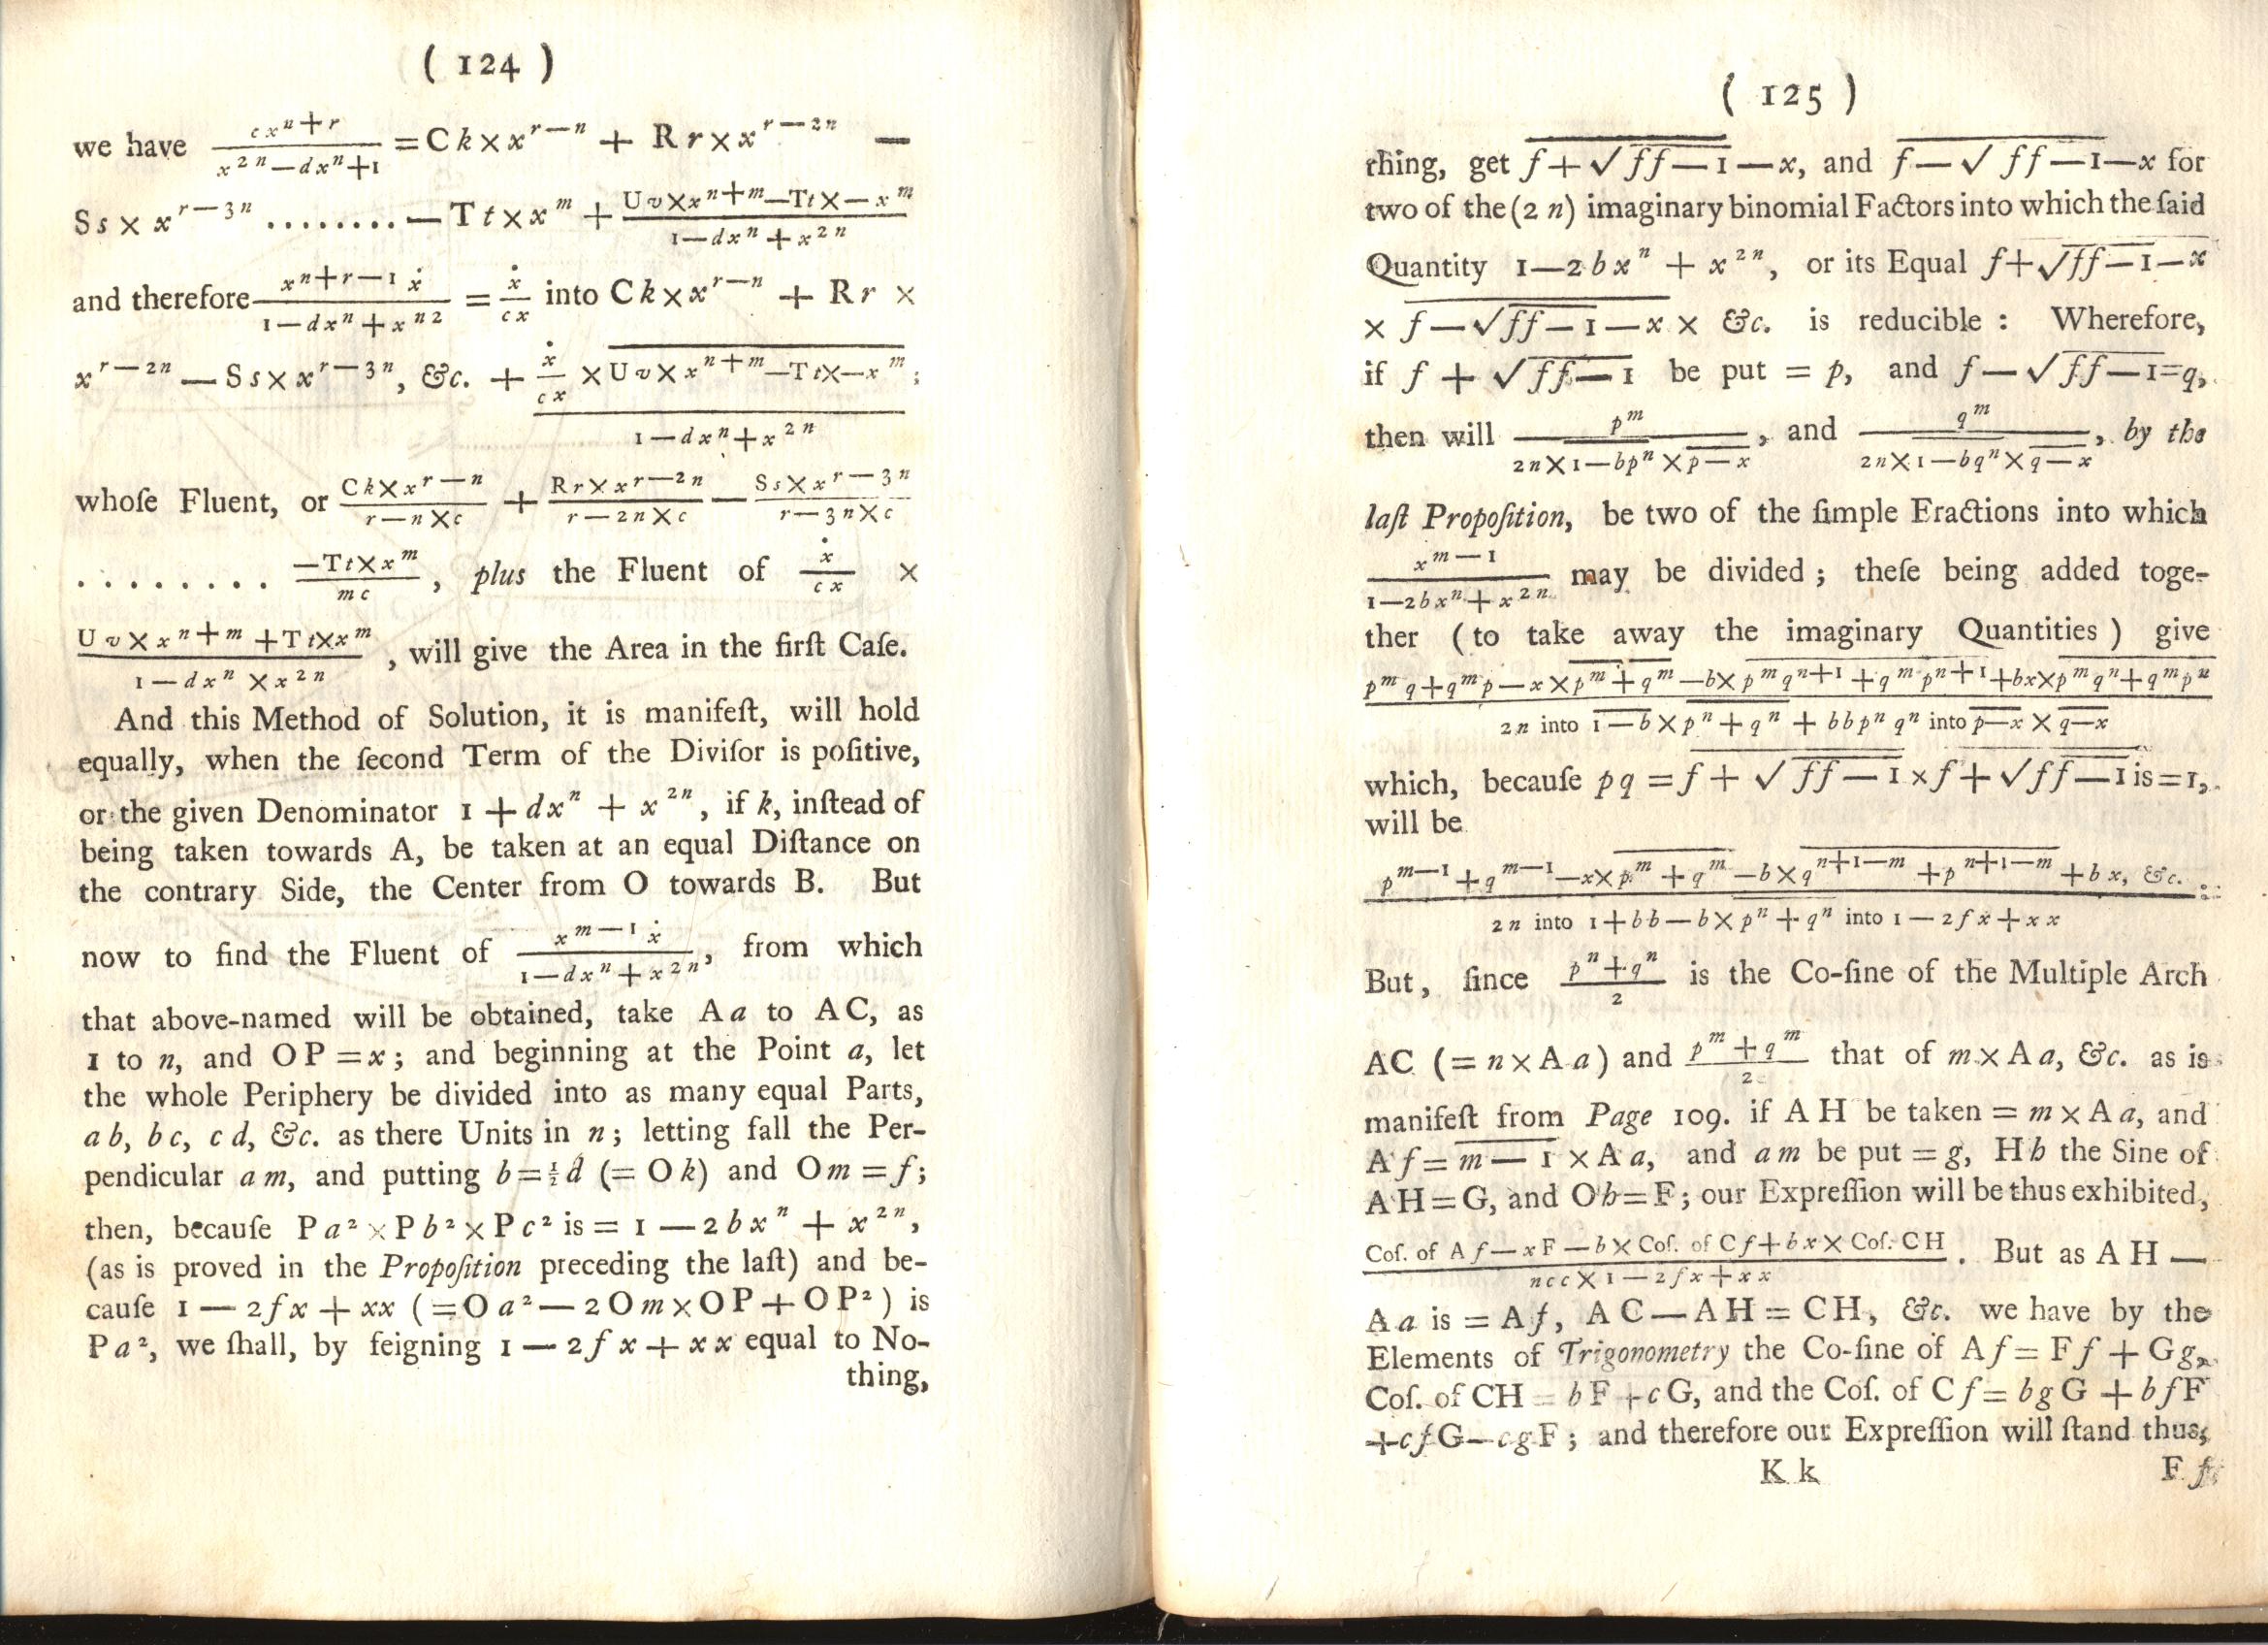 ( 124 )
we have \frac{cx^{n+r}}{x^{2n}-dx^{n}+1} = Ck × x^{r-n} + Rr × x^{r-2n} —
Ss × x^{r-3n} ........ — Tt × x^{m} + \frac{Uv×x^{n+m}—Tt×—x^{m}}{1—dx^{n}+x^{2n}}
and therefore \frac{x^{n+r-1}ẋ}{1—dx^{n}+x^{n2}} = \frac{ẋ}{cx} into Ck×x^{r-n} + Rr ×
x^{r-2n} — Ss×x^{r-3n}, &c. + \frac{\frac{ẋ}{cx} × \overline{Uv×x^{n+m}—Tt×—x^{m}}}{1—dx^{n}+x^{2n}};
whoſe Fluent, or \frac{Ck×x^{r-n}}{r—n×c} + \frac{Rr×x^{r-2n}}{r—2n×c} — \frac{Ss×x^{r-3n}}{r—3n×c}
. . . . . . . . \frac{—Tt×x^{m}}{mc}, plus the Fluent of \frac{ẋ}{cx} ×
\frac{Uv×x^{n+m}+Tt×x^{m}}{1—dx^{n}×x^{2n}}, will give the Area in the firſt Caſe.
And this Method of Solution, it is manifeſt, will hold
equally, when the ſecond Term of the Diviſor is poſitive,
or the given Denominator 1 + dx^{n} + x^{2n}, if k, inſtead of
being taken towards A, be taken at an equal Diſtance on
the contrary Side, the Center from O towards B. But
now to find the Fluent of \frac{x^{m-1}ẋ}{1—dx^{n}+x^{2n}}, from which
that above-named will be obtained, take A a to A C, as
1 to n, and O P = x; and beginning at the Point a, let
the whole Periphery be divided into as many equal Parts,
a b, b c, c d, &c. as there Units in n; letting fall the Per-
pendicular a m, and putting b = ½d (= O k) and O m = f;
then, becauſe P a² × P b² × P c² is = 1 — 2bx^{n} + x^{2n},
(as is proved in the Propoſition preceding the laſt) and be-
cauſe 1 — 2fx + xx (= O a² — 2 O m × O P + O P²) is
P a², we ſhall, by feigning 1 — 2fx + xx equal to No-
thing,
( 125 )
thing, get \overline{f+√\overline{ff—1}}—x, and \overline{f—√ff—1}—x for
two of the (2 n) imaginary binomial Factors into which the ſaid
Quantity 1—2bx^{n} + x^{2n}, or its Equal f+√\overline{ff—1}—x
× \overline{f—√\overline{ff—1}—x} × &c. is reducible : Wherefore,
if f + √\overline{ff—1} be put = p, and f—√\overline{ff—1}=q,
then will \frac{p^{m}}{2n×\overline{1—bp^{n}}×\overline{p—x}}, and \frac{q^{m}}{2n×\overline{1—bq^{n}}×\overline{q—x}}, by the
laſt Propoſition, be two of the ſimple Eractions into which
\frac{x^{m-1}}{1—2bx^{n}+x^{2n}} may be divided; theſe being added toge-
ther (to take away the imaginary Quantities) give
\frac{p^{m}q+q^{m}p—x×\overline{p^{m}+q^{m}}—b×\overline{p^{m}q^{n+1}+q^{m}p^{n+1}}+bx×\overline{p^{m}q^{n}+q^{m}p^{n}}}{2n into \overline{1—b}×\overline{p^{n}+q^{n}}+bbp^{n}q^{n} into \overline{p—x}×\overline{q—x}}
which, becauſe pq = \overline{f+√\overline{ff—1}}×\overline{f+√\overline{ff—1}} is = 1,
will be
\frac{p^{m-1}+q^{m-1}—x×\overline{p^{m}+q^{m}}—b×\overline{q^{n+1-m}+p^{n+1-m}}+bx, &c.}{2n into 1+bb—b×\overline{p^{n}+q^{n}} into 1—2fx+xx}:
But, ſince \frac{p^{n}+q^{n}}{2} is the Co-ſine of the Multiple Arch
AC (= n × A a) and \frac{p^{m}+q^{m}}{2} that of m × A a, &c. as is
manifeſt from Page 109. if A H be taken = m × A a, and
A f = \overline{m—1} × A a, and a m be put = g, H h the Sine of
A H = G, and O h = F; our Expreſſion will be thus exhibited,
\frac{Coſ. of A f—xF—b×Coſ. of C f+bx×Coſ. CH}{ncc×1—2fx+xx}. But as A H —
A a is = A f, A C — A H = CH, &c. we have by the
Elements of Trigonometry the Co-ſine of A f = F f + G g,
Coſ. of CH = b F + c G, and the Coſ. of C f = b g G + b f F
+ c f G — c g F; and therefore our Expreſſion will ſtand thus,
K k
F f